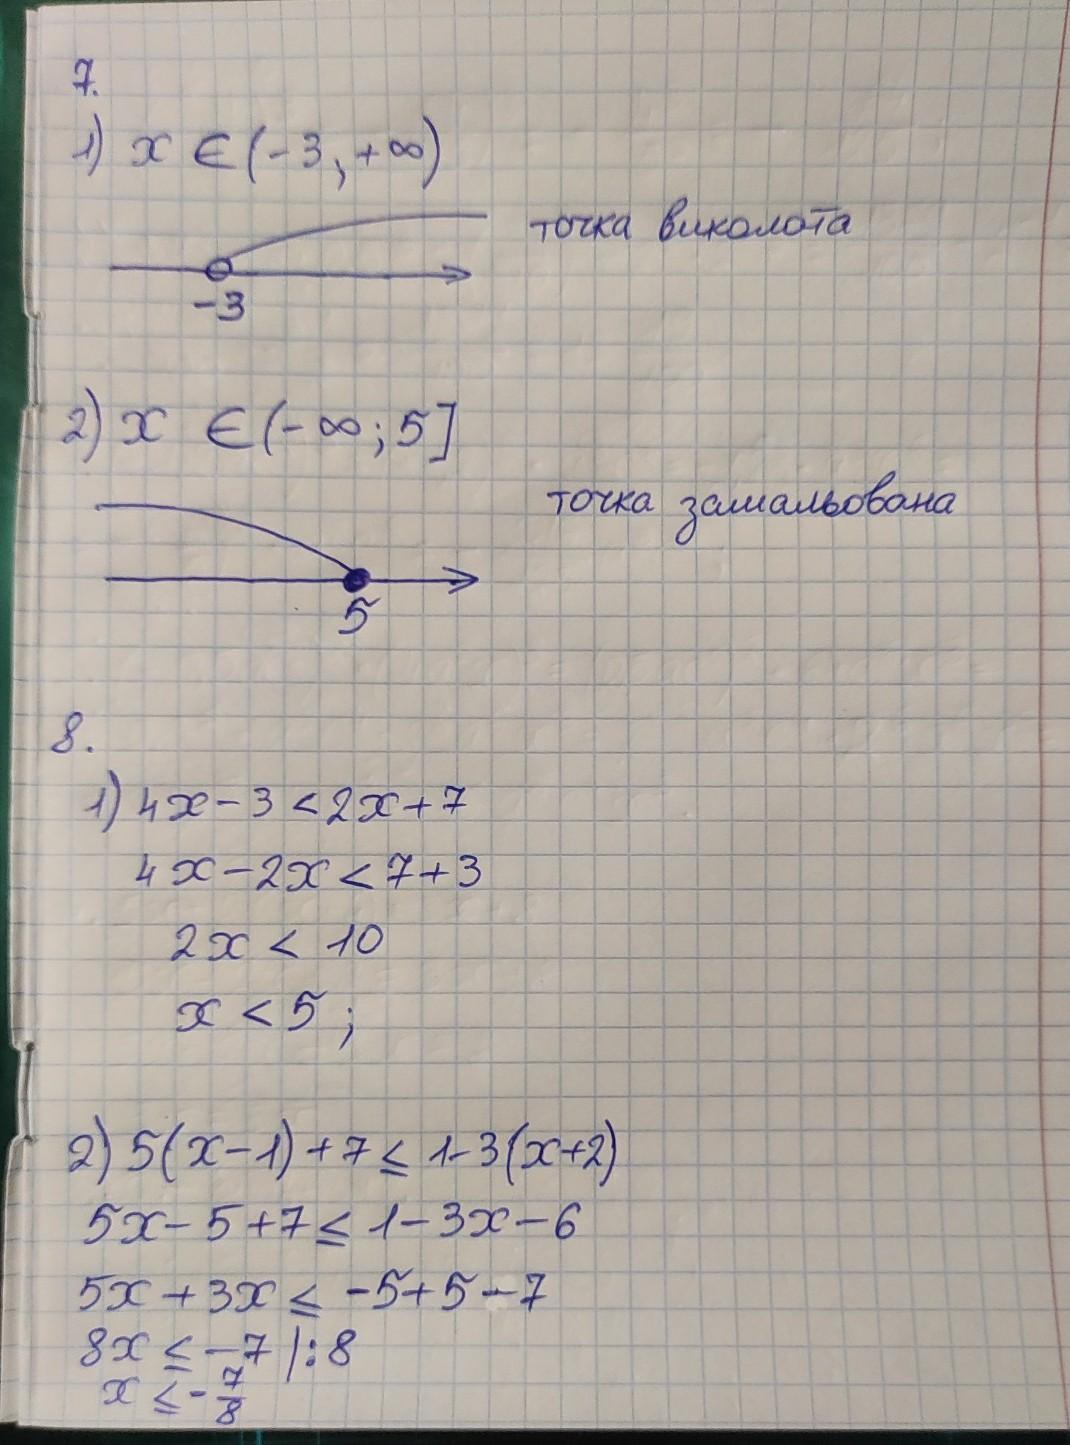 7.
1) x ∈ (-3, +∞)
точка виколота
-3
2) x ∈ (-∞; 5]
точка замальована
5
8.
1) 4x - 3 < 2x + 7
4x - 2x < 7 + 3
2x < 10
x < 5 ;
2) 5(x-1) + 7 ≤ 1-3(x+2)
5x - 5 + 7 ≤ 1 - 3x - 6
5x + 3x ≤ -5 + 5 - 7
8x ≤ -7 |:8
x ≤ -7/8